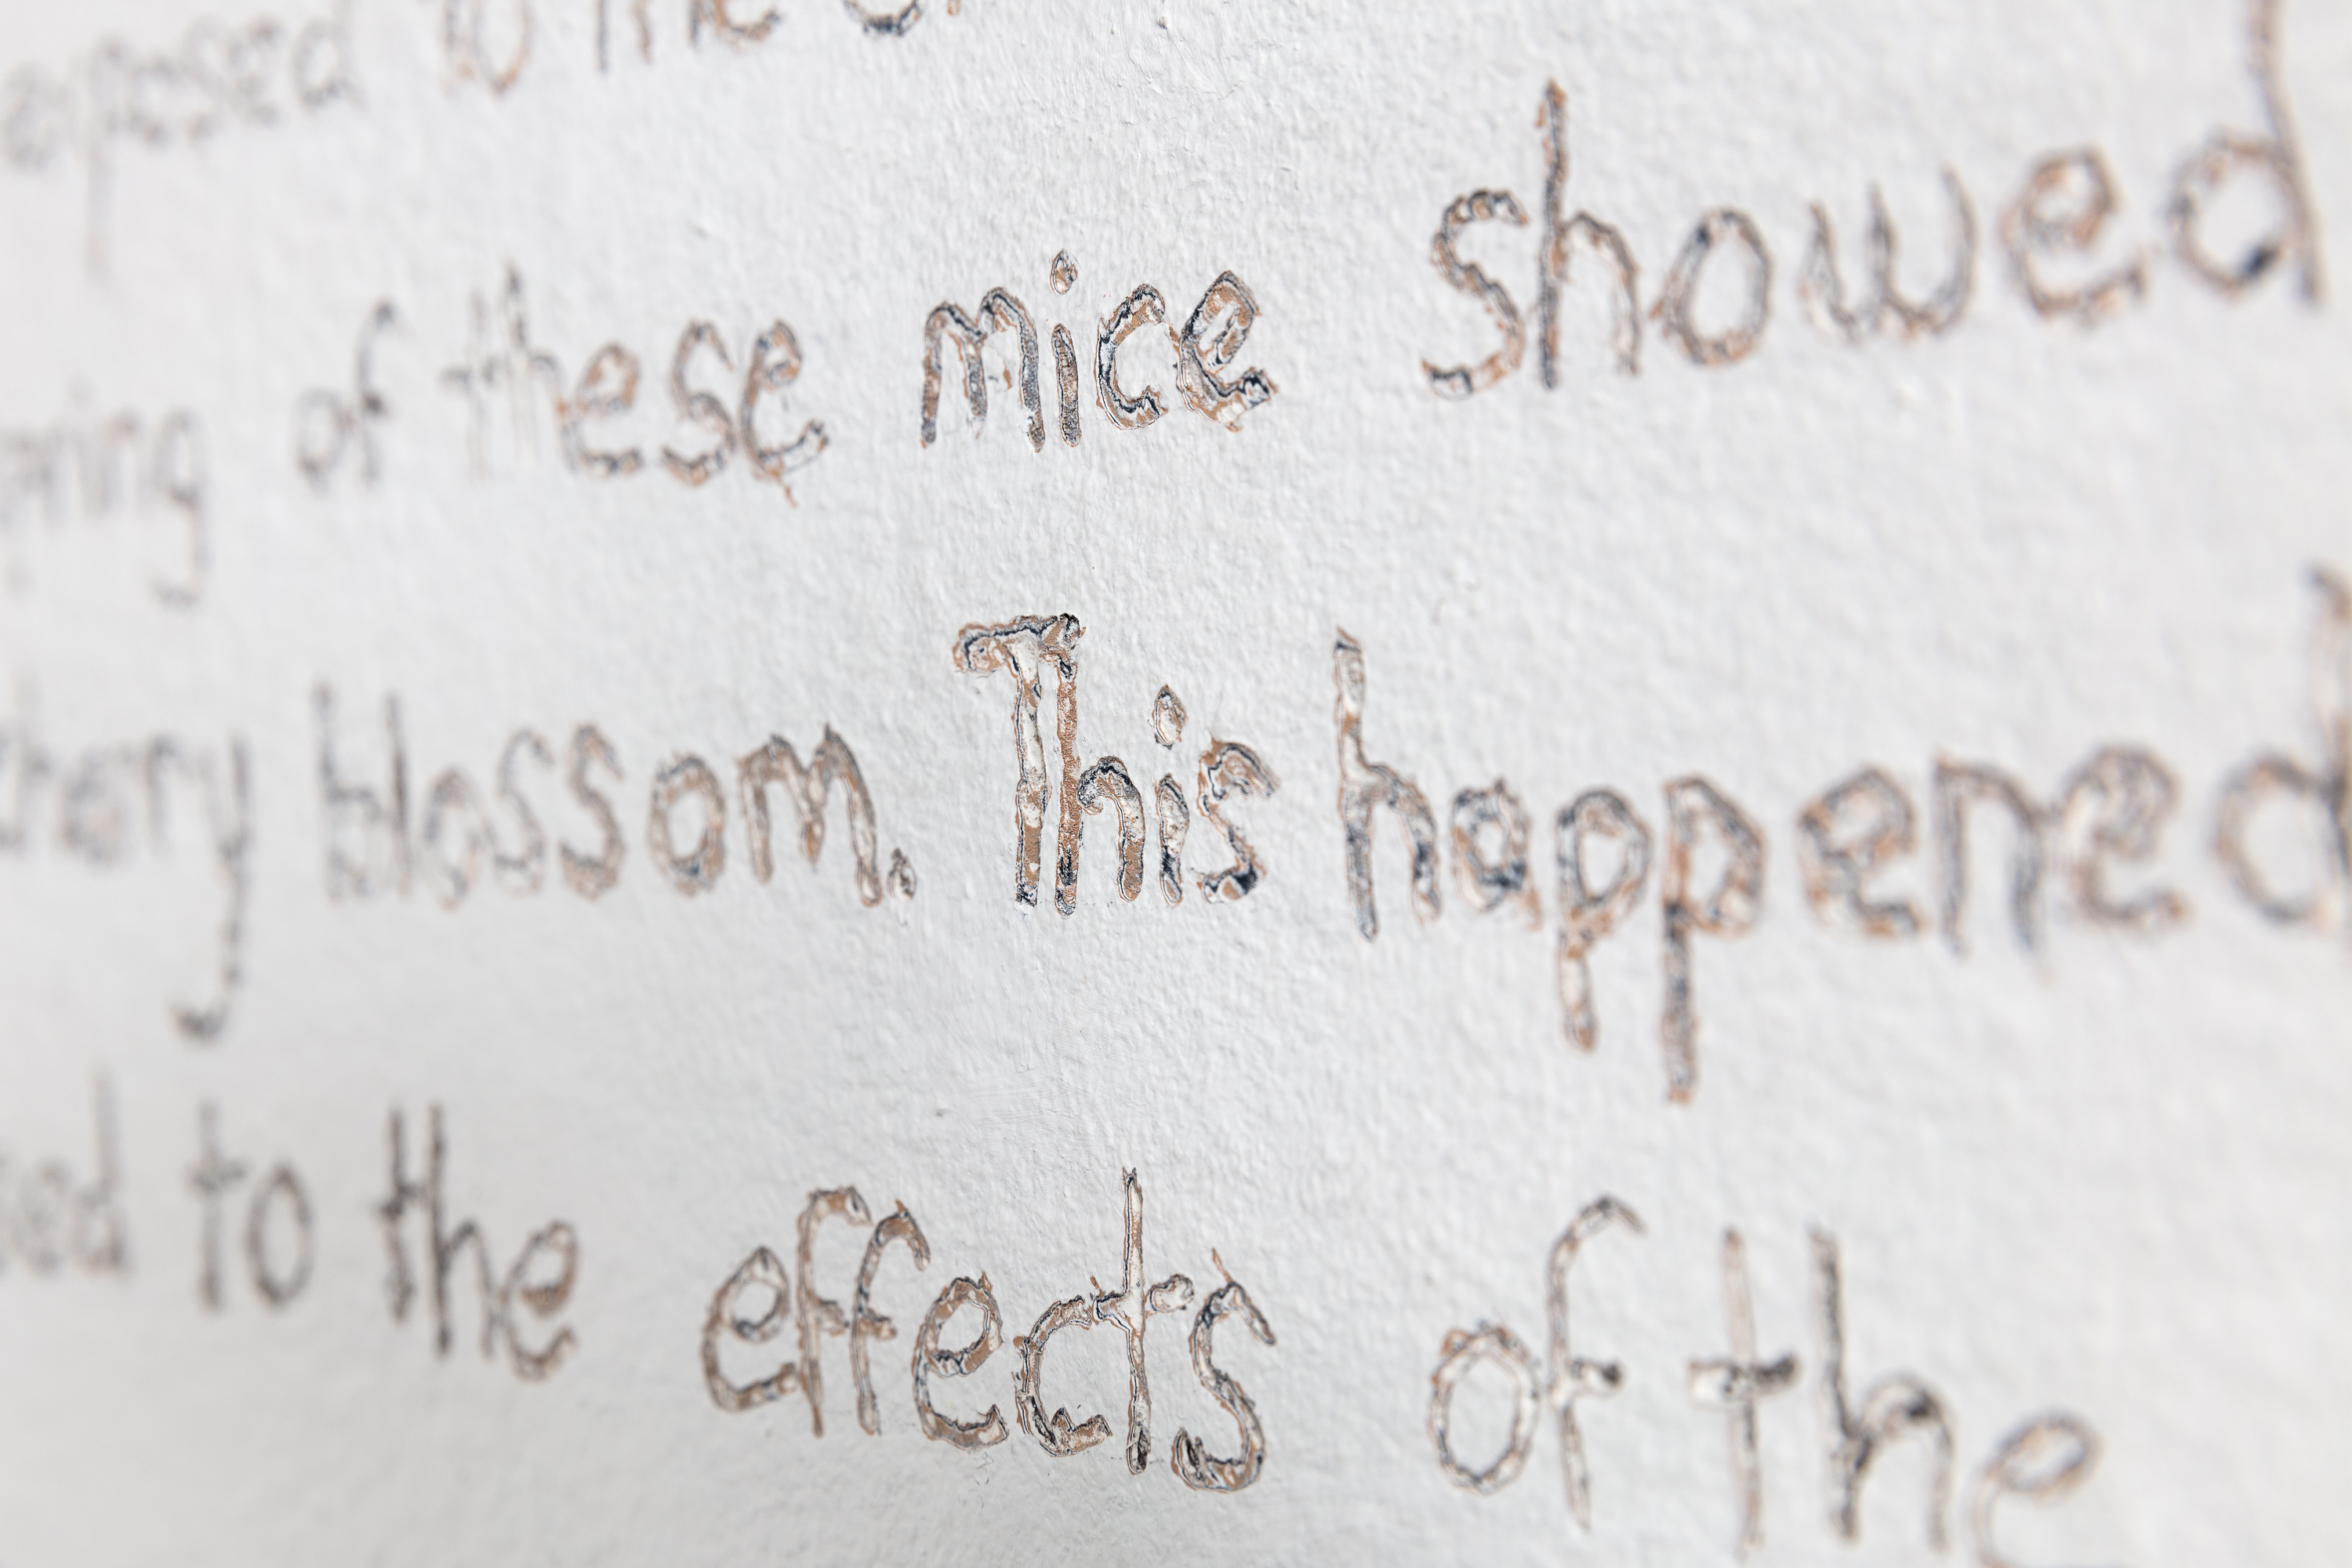 eposed to the
of these mice showed
blossom. This happened
to the effects of the